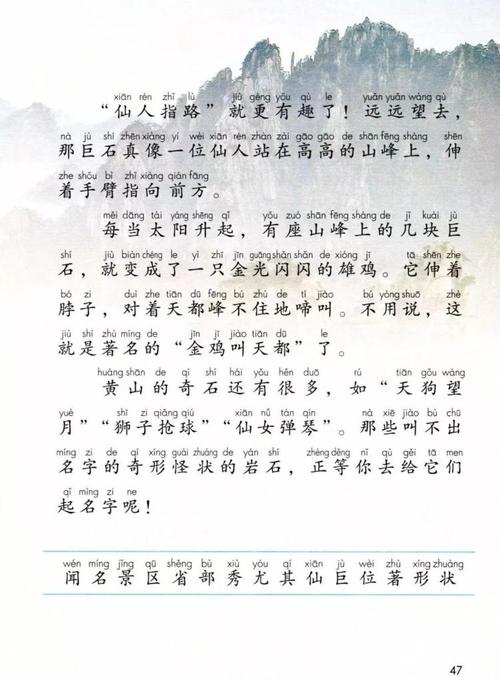 xiān rén zhǐ lù jiù gèng yǒu qù le yuǎn yuǎn wàng qù
“仙人指路”就更有趣了！远远望去，
nà jù shí zhēn xiàng yí wèi xiān rén zhàn zài gāo gāo de shān fēng shàng shēn
那巨石真像一位仙人站在高高的山峰上，伸
zhe shǒu bì zhǐ xiàng qián fāng
着手臂指向前方。
měi dāng tài yáng shēng qǐ yǒu zuò shān fēng shàng de jǐ kuài jù
每当太阳升起，有座山峰上的几块巨
shí jiù biàn chéng le yì zhī jīn guāng shǎn shǎn de xióng jī tā shēn zhe
石，就变成了一只金光闪闪的雄鸡。它伸着
bó zi duì zhe tiān dū fēng bú zhù de tí jiào bú yòng shuō zhè
脖子，对着天都峰不住地啼叫。不用说，这
jiù shì zhù míng de jīn jī jiào tiān dū le
就是著名的“金鸡叫天都”了。
huáng shān de qí shí hái yǒu hěn duō rú tiān gǒu wàng
黄山的奇石还有很多，如“天狗望
yuè shī zi qiǎng qiú xiān nǚ tán qín nà xiē jiào bù chū
月”“狮子抢球”“仙女弹琴”。那些叫不出
míng zi de qí xíng guài zhuàng de yán shí zhèng děng nǐ qù gěi tā men
名字的奇形怪状的岩石，正等你去给它们
qǐ míng zi ne
起名字呢！
wén míng jǐng qū shěng bù xiù yóu qí xiān jù wèi zhù xíng zhuàng
闻名景区省部秀尤其仙巨位著形状
47